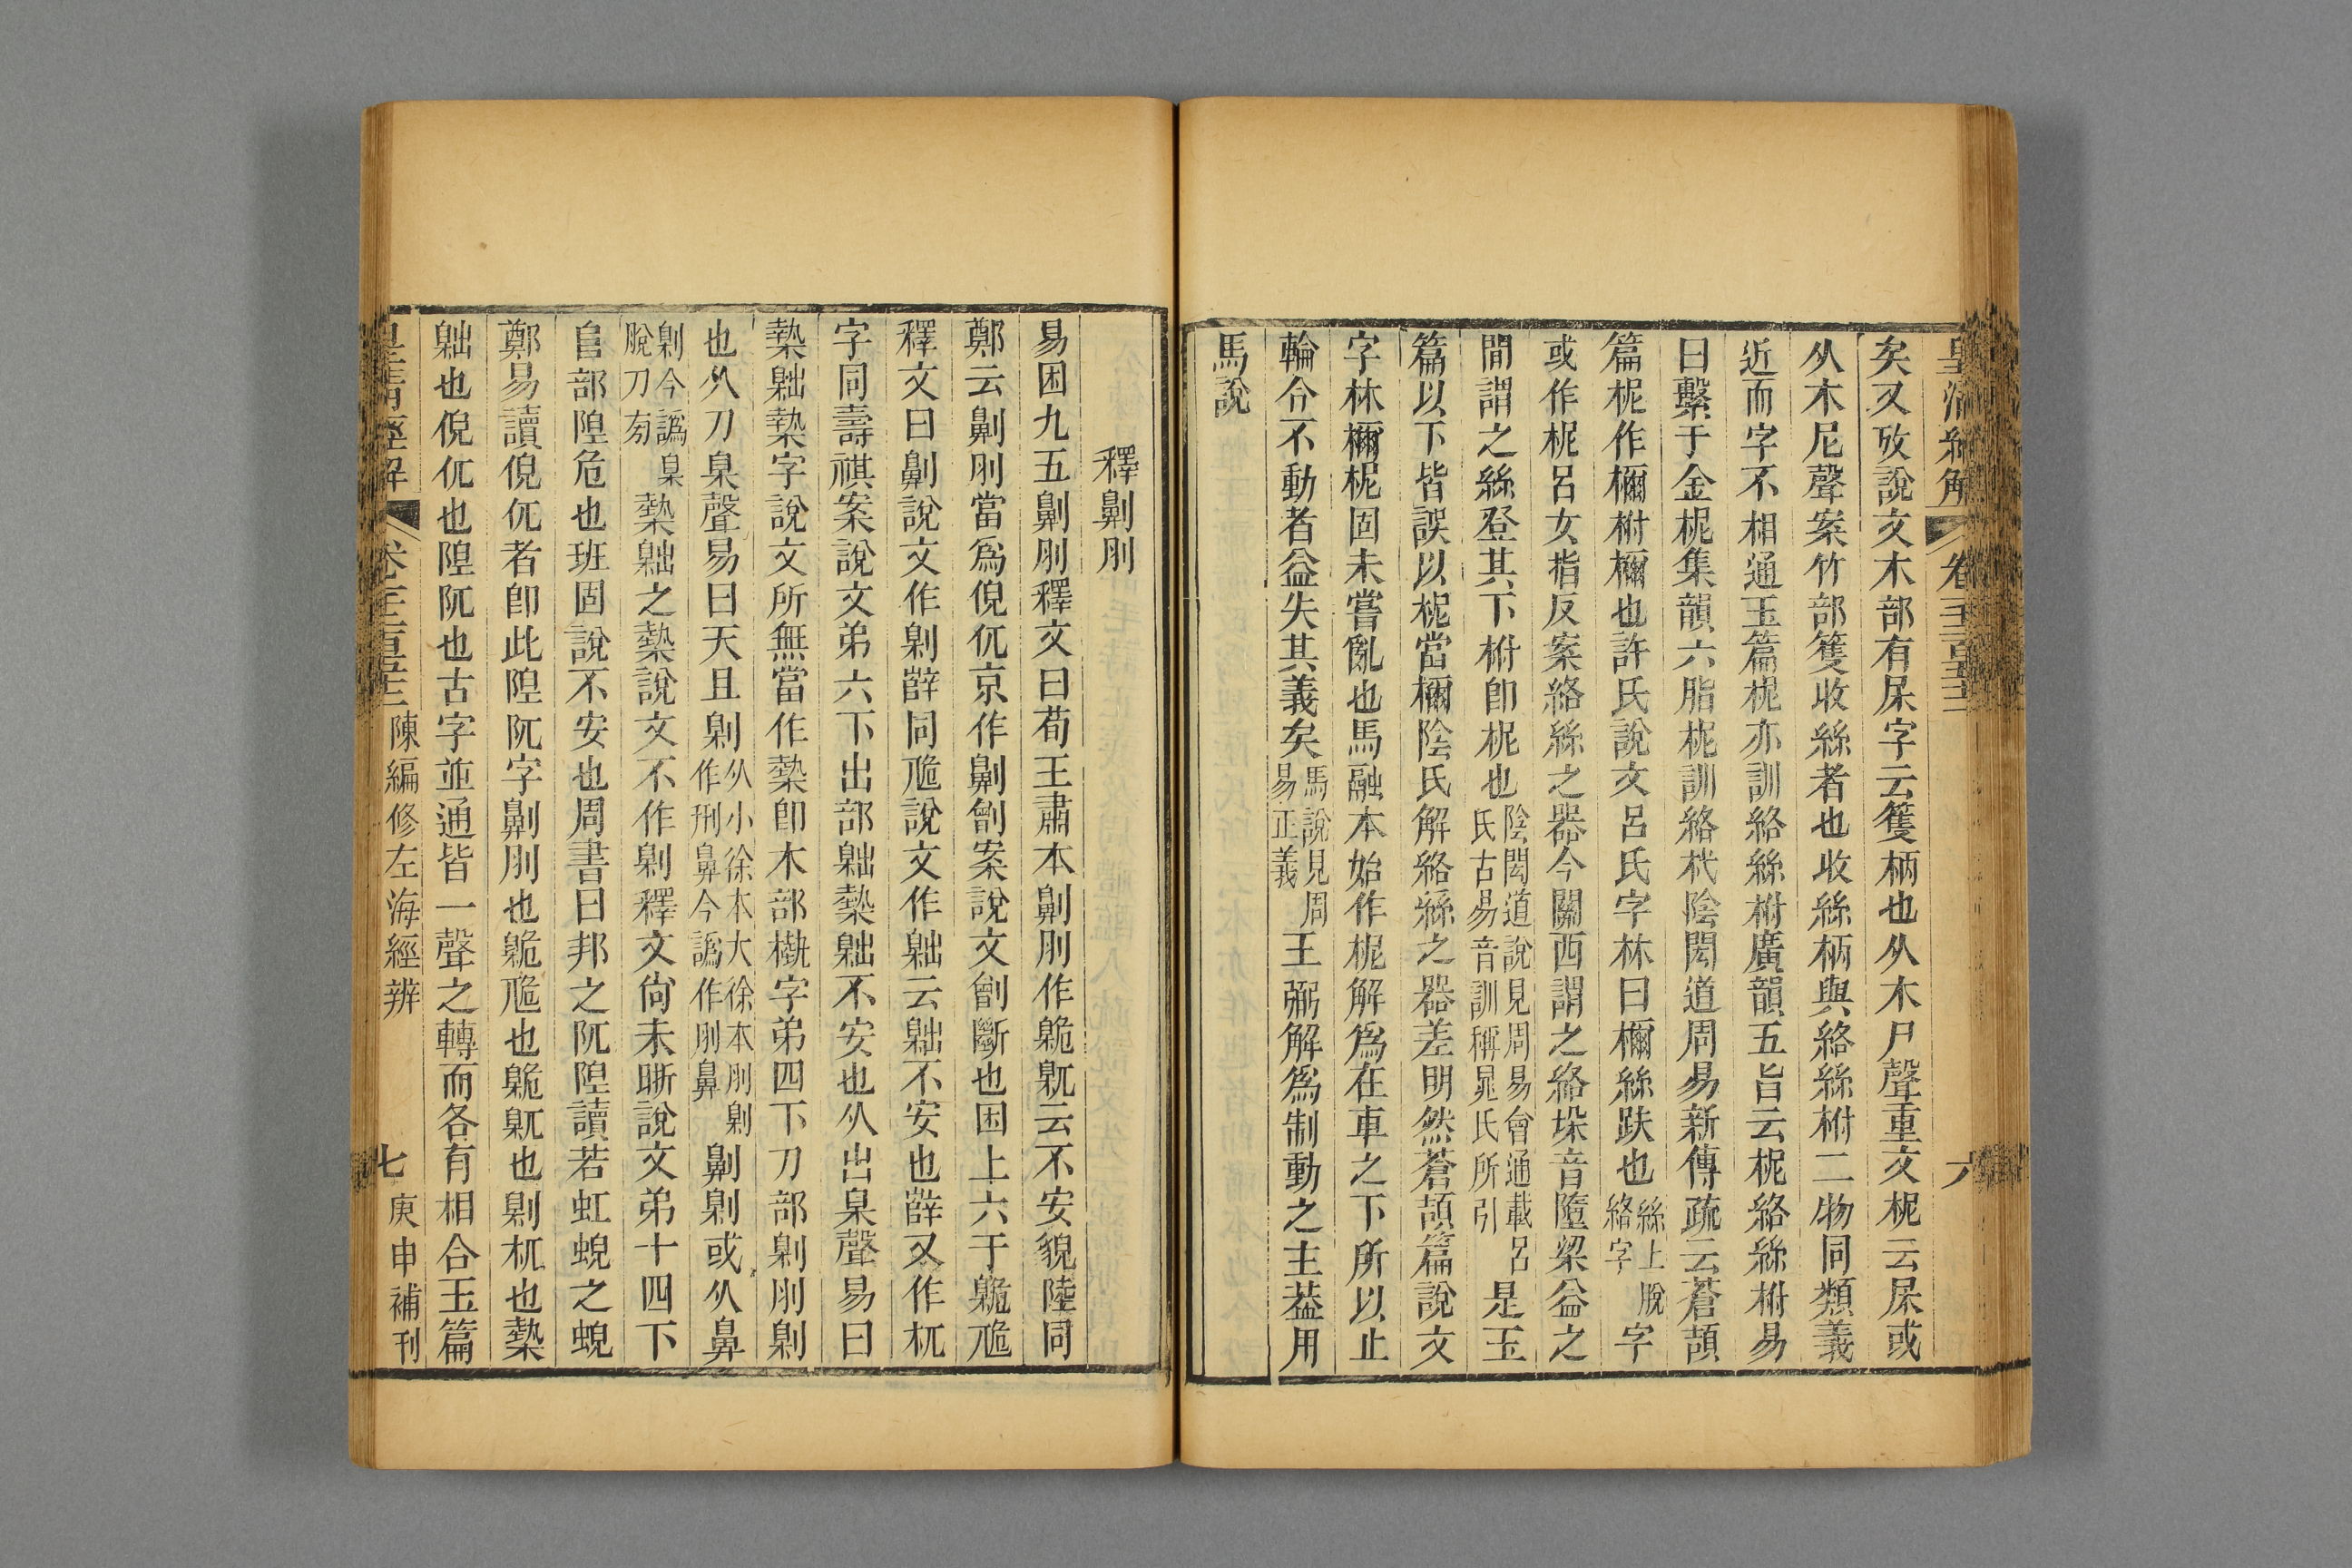 皇清經解 卷千二百五十二 六
矣又攷說文木部有㞕字云籆柄也从木尸聲重文柅云㞕或
从木尼聲案竹部籆收絲者也收絲柄與絡絲柎二物同類義
近而字不相通玉篇柅亦訓絡絲柎廣韻五旨云柅絡絲柎易
曰繫于金柅集韻六脂柅訓絡杙陰閎道周易新傳疏云蒼頡
篇柅作檷柎檷也許氏說文呂氏字林曰檷絲趺也絲上脫絡字字
或作柅呂女指反案絡絲之器今關西謂之絡垛音墮梁益之
間謂之絲登其下柎卽柅也陰閎道說見周易會通載呂氏古易音訓稱晁氏所引是玉
篇以下皆誤以柅當檷陰氏解絡絲之器差明然蒼頡篇說文
字林檷柅固未嘗亂也馬融本始作柅解爲在車之下所以止
輪令不動者益失其義矣馬說見周易正義王弼解爲制動之主葢用
馬說
釋劓刖
易困九五劓刖釋文曰荀王肅本劓刖作臲𡰈云不安貌陸同
鄭云劓刖當爲倪㐳京作劓劊案說文劊斷也困上六于臲卼
釋文曰劓說文作臬薛同卼說文作𡰈云𡰈不安也薛又作杌
字同壽祺案說文弟六下出部𡰈槷𡰈不安也从出臬聲易曰
槷𡰈槷字說文所無當作槷卽木部槸字弟四下刀部臬刖劓
也从刀臬聲易曰天且劓从小徐本大徐本刖劓作刑鼻今譌作刖鼻劓臬或从鼻
臬今譌臬脫刀㫄槷𡰈之槷說文不作臬釋文尙未晰說文弟十四下
𨸏部隉危也班固說不安也周書曰邦之阢隉讀若虹蜺之蜺
鄭易讀倪㐳者卽此隉阢字劓刖也臲卼也臲𡰈也臬杌也槷
𡰈也倪㐳也隉阢也古字並通皆一聲之轉而各有相合玉篇
皇清經解 卷千二百五十二 陳編修左海經辨 七 庚申補刊